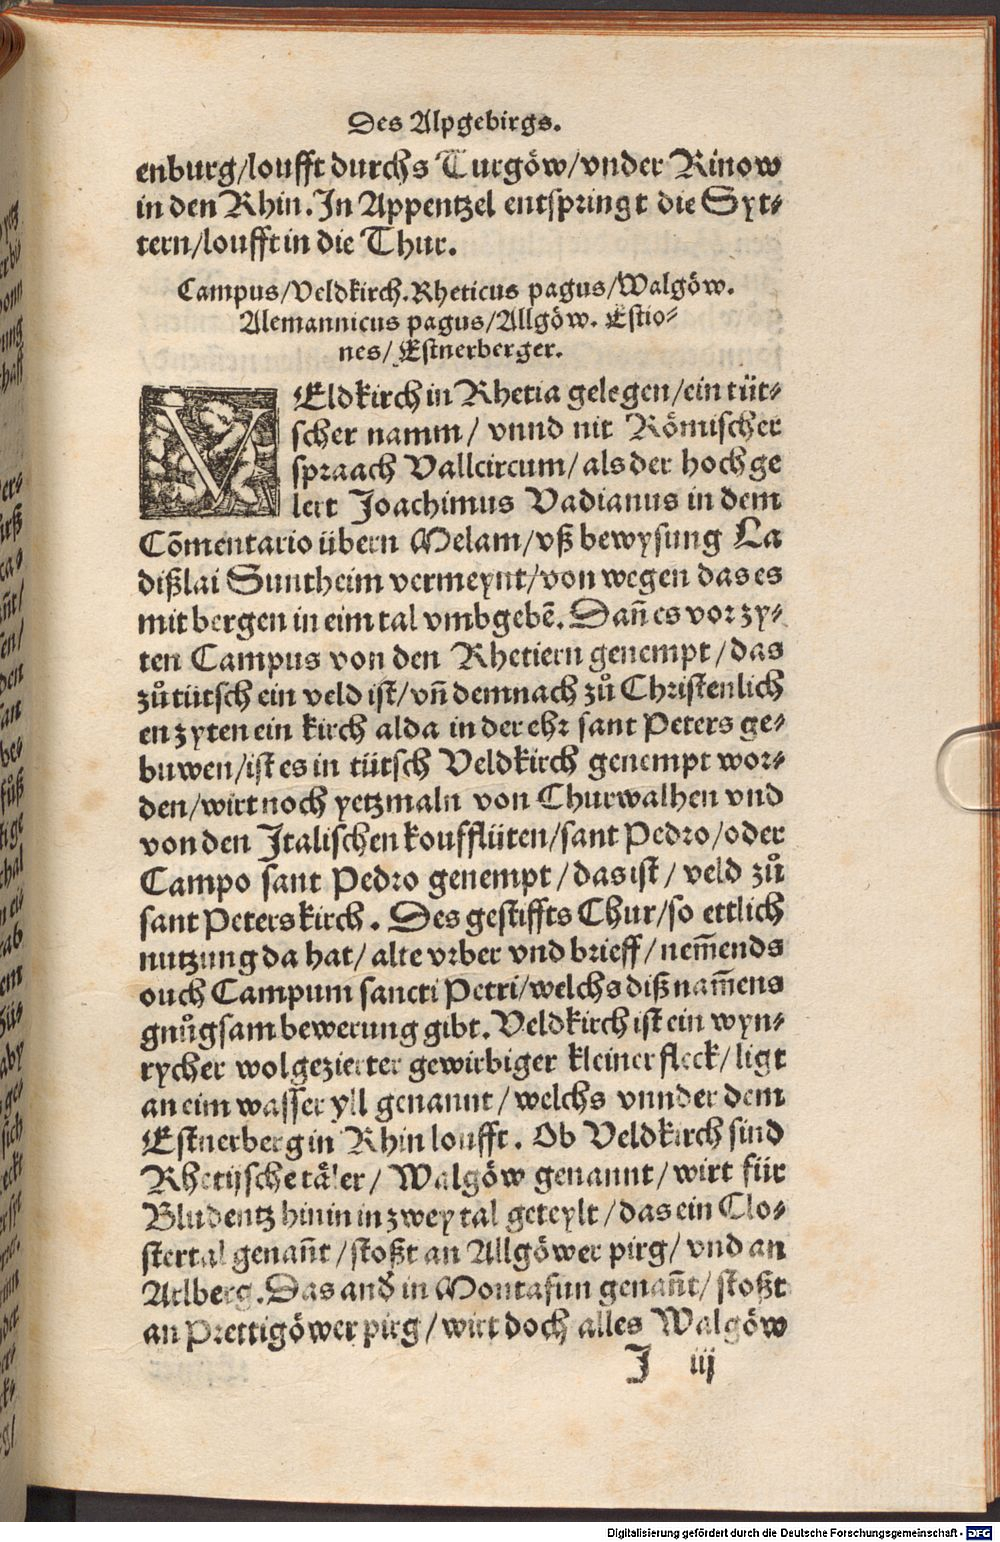 Des Alpgebirgs.
enburg/loufft durchs Turgöw/vnder Rinow
in den Rhin. In Appentzel entspringt die Syt⸗
tern/loufft in die Thur.
Campus/Veldkirch. Rheticus pagus/Walgöw.
Alemannicus pagus/Allgöw. Estio⸗
nes/Estnerberger.
VEldkirch in Rhetia gelegen/ein tüt⸗
scher namm/ vnnd nit Römischer
spraach Vallcircum/als der hochge
lert Joachimus Vadianus in dem
Cōmentario übern Melam/vß bewysung La
dißlai Suntheim vermeynt/von wegen das es
mit bergen in eim tal vmbgebē. Dañ es vor zy⸗
ten Campus von den Rhetiern genempt/das
zů tütsch ein veld ist/vñ demnach zů Christenlich
en zyten ein kirch alda in der ehr sant Peters ge⸗
buwen/ist es in tütsch Veldkirch genempt wor⸗
den/wirt noch yetzmaln von Churwalhen vnd
von den Italischen koufflüten/sant Pedro/oder
Campo sant Pedro genempt/das ist/ veld zů
sant Peters kirch. Des gestiffts Chur/so ettlich
nutzung da hat/ alte vrber vnd brieff/nem̃ends
ouch Campum sancti Petri/welchs diß nam̃ens
gnůgsam bewerung gibt. Veldkirch ist ein wyn⸗
rycher wolgezierter gewirbiger kleiner fleck/ligt
an eim wasser yll genannt/welchs vnnder dem
Estnerberg in Rhin loufft. Ob Veldkirch sind
Rhetijsche täler/ Walgöw genannt/wirt für
Bludentz hinin in zwey tal geteylt/das ein Clo⸗
stertal genañt/stoßt an Allgöwer pirg/vnd an
Arlberg. Das and̕ in Montafun genañt/stoßt
an Prettigöwer pirg/wirt doch alles Walgöw
I iij
Digitalisierung gefördert durch die Deutsche Forschungsgemeinschaft - DFG